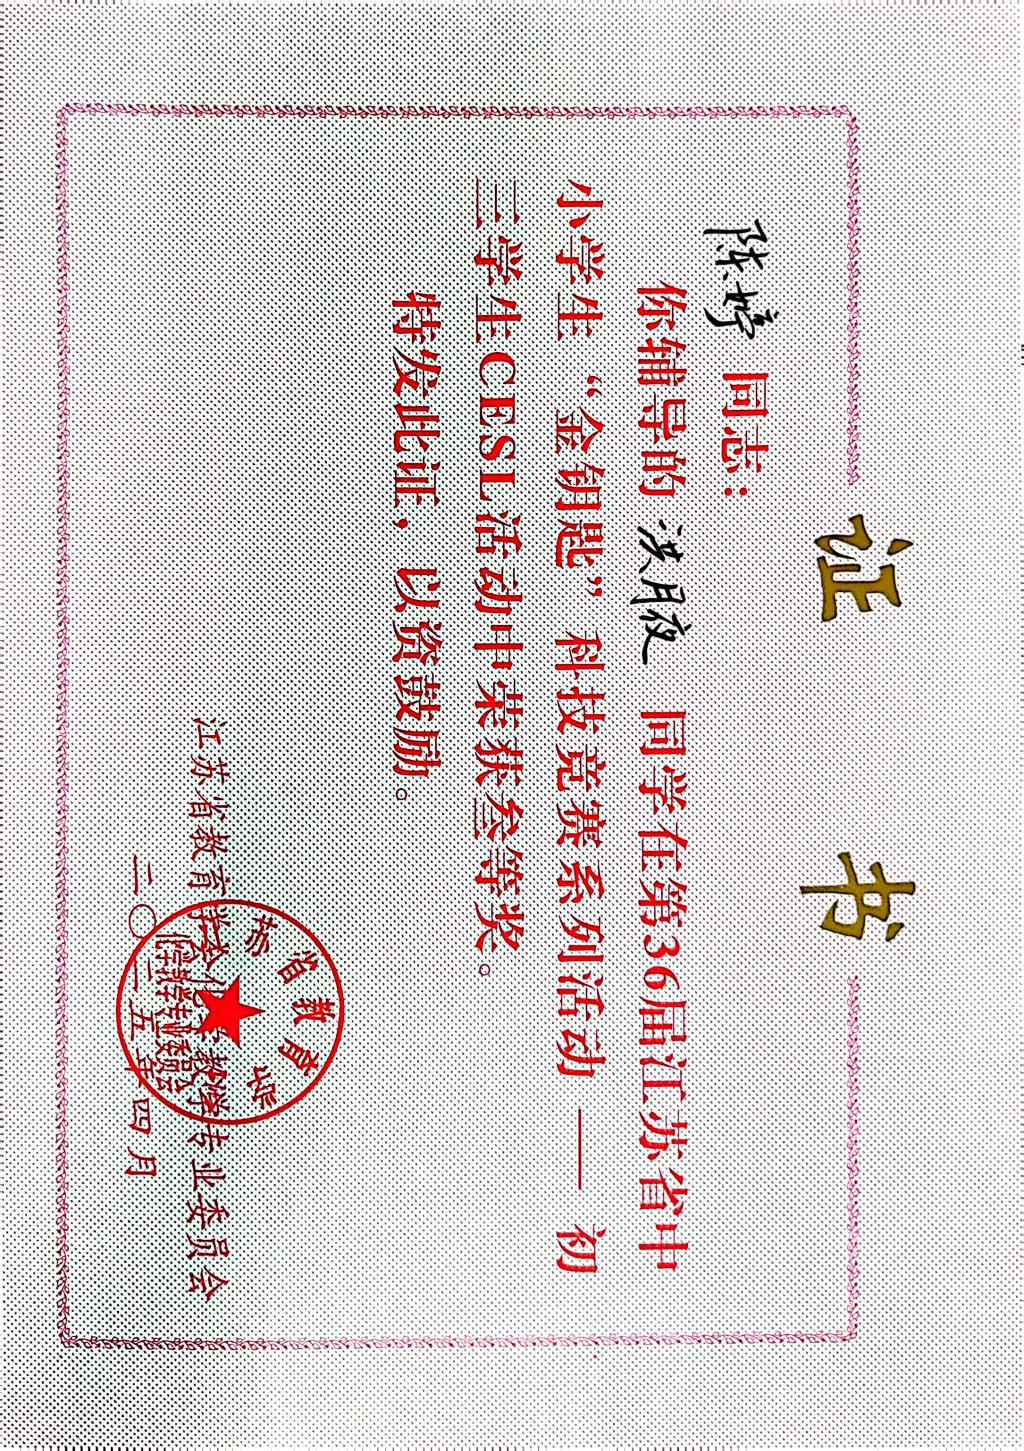 证 书
陈婷 同志：
你辅导的 洪月夜 同学在第36届江苏省中
小学生“金钥匙”科技竞赛系列活动——初
三学生CESL活动中荣获叁等奖。
特发此证，以资鼓励。
江苏省教育学会化学教学专业委员会
二〇二五年四月
苏省教育学
化学教学专业委员会